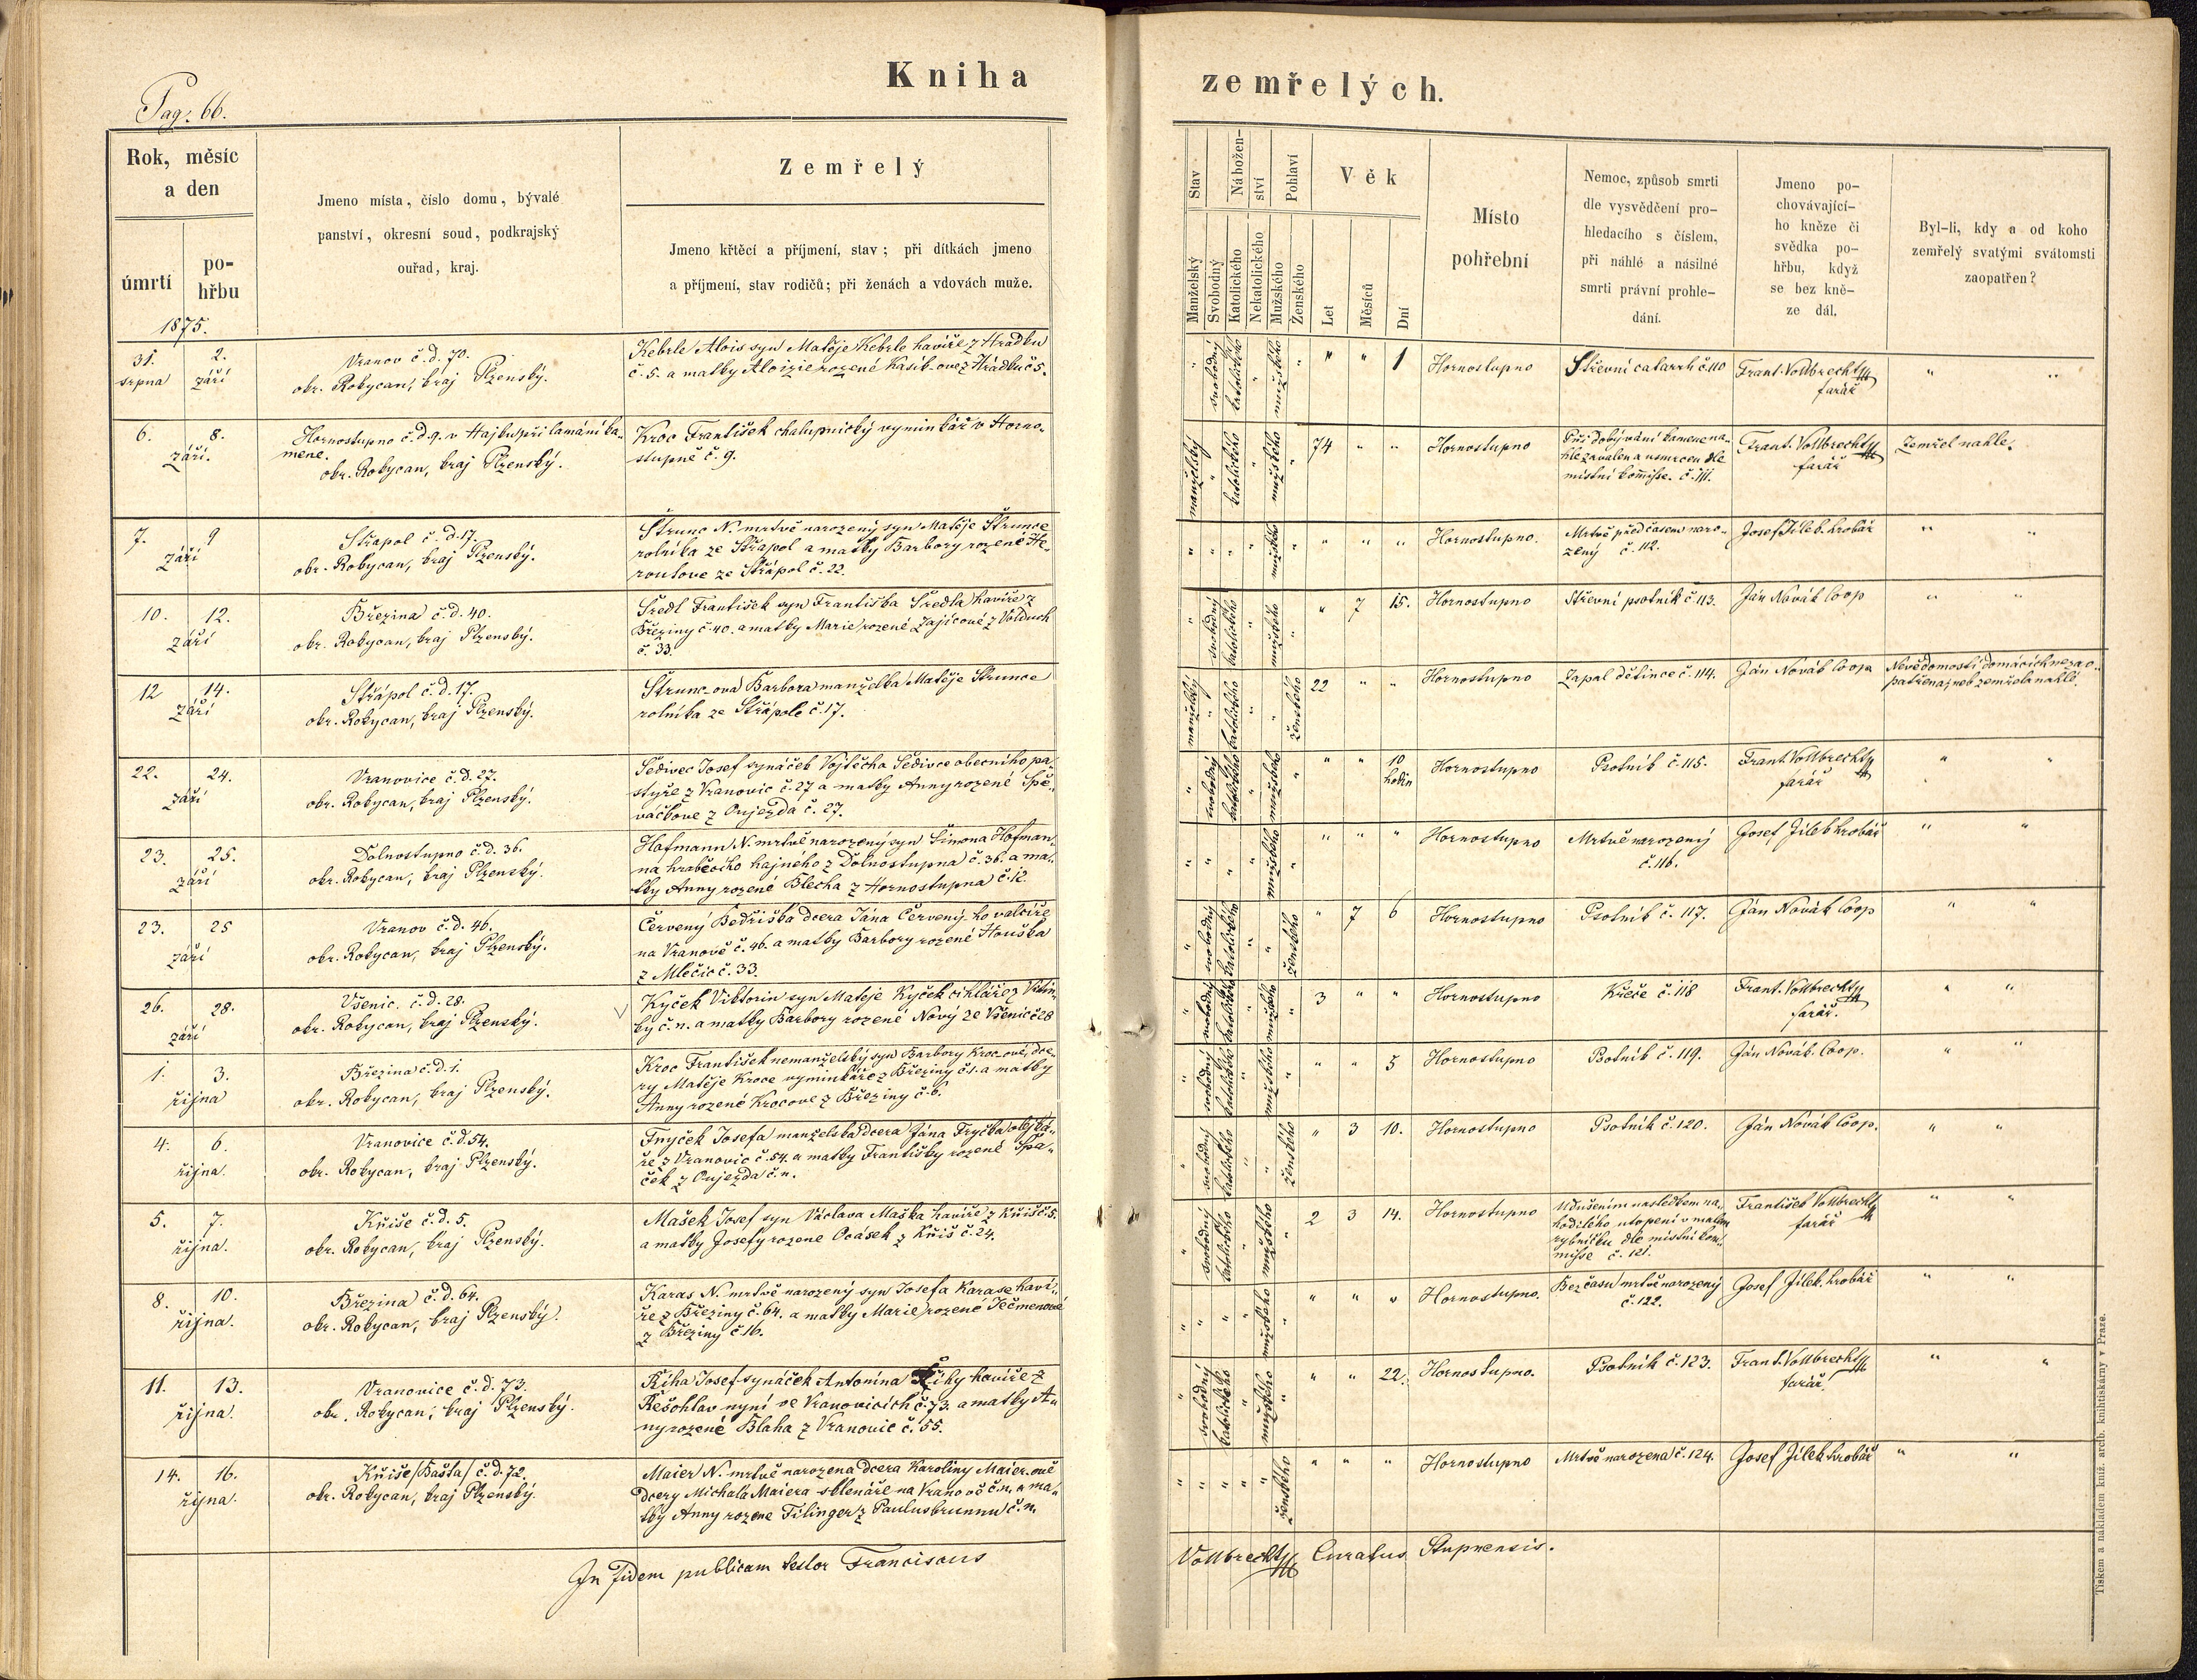 Kniha
zemřelých.
Pag. 66.
Rok, měsíc
a den
úmrtí
po-
hřbu
Jmeno místa, číslo domu, bývalé
panství, okresní soud, podkrajský
ouřad, kraj.
Zemřelý
Jmeno křtěcí a příjmení, stav; při dítkách jmeno
a příjmení, stav rodičů; při ženách a vdovách muže.
Stav
Manželský
Svobodný
Nábožen-
ství
Katolického
Nekatolického
Pohlaví
Mužského
Ženského
Věk
Let
Měsíců
Dní
Místo
pohřební
Nemoc, způsob smrti
dle vysvědčení pro-
hledacího s číslem,
při náhlé a násilné
smrti právní prohle-
dání.
Jmeno po-
chovávající-
ho kněze či
svědka po-
hřbu, když
se bez kně-
ze dál.
Byl-li, kdy a od koho
zemřelý svatými svátomsti
zaopatřen?
1875.
31. 2.
srpna září
Vranov č. d. 70.
okr. Rokycan, kraj Plzenský.
Kebrle Alois syn Matěje Kebrle havíře z Hrádku
č. 5. a matky Aloizie rozené Kasík-ove z Hrádku č 5.
" svobodný katolického " mužského " " " 1
Hornostupno
Střevní catarrh č. 110
Frant. Vollbrecht
farář
" "
6. 8.
září.
Hornostupno č. d. 9. v Hájku při lamání ka-
mene.
okr. Rokycan, kraj Plzenský.
Kroc František chalupnický vyminkář v Horno-
stupně č. 9.
manželský " katolického " mužského " 74 " "
Hornostupno
Při dobývání kamene na-
hle zavalen a usmrcen dle
místní komisse. č. 111.
Frant. Vollbrecht
farář
Zemřel nahle.
7. 9
září
Střapol č. d. 17.
okr. Rokycan, kraj Plzenský.
Štrunc N. mrtvě narozený syn Matěje Štrunce
rolníka ze Střapol a matky Barbory rozené He-
routove ze Střápol č. 22.
" " " " mužského " " " "
Hornostupno.
Mrtvě před časem naro-
zený č. 112.
Josef Jílek hrobář
" "
10. 12.
září
Březina č. d. 40.
okr. Rokycan, kraj Plzenský.
Šredl František syn Františka Šredla havíře z
Březiny č. 40. a matky Marie rozené Zajícové z Volduch
č. 33.
" svobodný katolického " mužského " " 7 15.
Hornostupno
Střevní psotník č 113.
Ján Novák Coop
" "
12 14.
září
Střápol č. d. 17.
okr. Rokycan, kraj Plzenský.
Štrunc-ova Barbora manželka Matěje Štrunce
rolníka ze Střápole č. 17.
manželský " katolického " " ženského 22 " "
Hornostupno
Zapal dětince č. 114.
Ján Novák Coop
Nevědomostí domácích nezao-
patřena, neb zemřela nahle.
22. 24.
září
Vranovice č. d. 27.
okr. Rokycan, kraj Plzenský.
Šedivec Josef synáček Vojtěcha Šedivce obecního pa-
stýře z Vranovic č. 27 a matky Anny rozené Spě-
váčkove z Oujezda č. 27.
" svobodný katolického " mužského " " " 10
hodin
Hornostupno
Psotník č. 115.
Frant. Vollbrecht
farář
" "
23. 25.
září
Dolnostupno č. d. 36.
okr. Rokycan, kraj Plzenský.
Hofmann N. mrtvě narozený syn Šimona Hofman-
na hraběcího hajného z Dolnostupna č. 36. a ma-
tky Anny rozené Blecha z Hornostupna č. 12.
" " " " mužského " " " "
Hornostupno
Mrtvě narozený
č. 116.
Josef Jílek hrobář
" "
23. 25
září
Vranov č. d. 46.
okr. Rokycan, kraj Plzenský.
Červený Bedřiška dcera Jána Červený-ho valcíře
na Vranově č. 46. a matky Barbory rozené Houška
z Mlečic č. 33.
" svobodný katolického " " ženského " 7 6
Hornostupno
Psotník č. 117.
Ján Novák Coop
" "
26. 28.
září
Všenic. č. d. 28.
okr. Rokycan, kraj Plzenský.
Kyček Viktorin syn Matěje Kyček cihláře z
ky č. n. a matky Barbory rozené Nový ze Všenic č 28
" svobodný katolického " mužského " 3 " "
Hornostupno
Křeče č. 118
Frant. Vollbrecht
farář.
" "
1. 3.
října
Březina č. d. 1.
okr. Rokycan, kraj Plzenský.
Kroc František nemanželský syn Barbory Kroc-ové, dce-
ry Matěje Kroce vyminkáře z Březiny č. 1. a matky
Anny rozené Krocove z Březiny č. 6.
" svobodný katolického " mužského " " " 5
Hornostupno
Psotník č. 119.
Ján Novák Coop.
" "
4. 6.
října.
Vranovice č. d. 54.
okr. Rokycan, kraj Plzenský.
Fryček Josefa manželska dcera Jána Fryčka olejká-
ře z Vranovic č. 54. a matky Františky rozené Špa-
ček z Oujezda č. n.
" svobodný katolického " " ženského " 3 10.
Hornostupno
Psotník č. 120.
Ján Novák Coop.
" "
5. 7.
října.
Kříše č. d. 5.
okr. Rokycan, kraj Plzenský.
Mašek Josef syn Václava Maška havíře z Kříš č. 5.
a matky Josefy rozene Ocásek z Kříš č. 24.
" svobodný katolického " mužského " 2 3 14.
Hornostupno
Udušením následkem na-
hodilého utopení v malem
rybníčku dle místní kom-
misse č. 121.
František Vollbrecht
farář
" "
8. 10.
října.
Březina č. d. 64.
okr. Rokycan, kraj Plzenský.
Karas N. mrtvě narozený syn Josefa Karase haví-
ře z Březiny č. 64. a matky Marie rozené Ječmenové
z Březiny č 16.
" " " " mužského " " " "
Hornostupno.
Bez času mrtvě narozený
č. 122.
Josef Jílek hrobář
" "
11. 13.
října.
Vranovice č. d. 73.
okr. Rokycan, kraj Plzenský.
Říha Josef synáček Antonína Říhy havíře z
Řešohlav nyní ve Vranovicích č. 73. a matky A-
ny rozené Blaha z Vranovic č. 55.
" svobodný katolického " mužského " " " 22.
Hornostupno.
Psotník č. 123.
Frant. Vollbrecht
farář.
" "
14. 16.
října.
Kříše /Bašta/ č. d. 72.
okr. Rokycan, kraj Plzenský.
Maier N. mrtvě narozena dcera Karoliny Maier-ové
dcery Michala Maiera sklenáře na Vranově č. n. a ma-
tky Anny rozene Filinger z Paulusbrunnu č. n.
" " " " " ženského " " "
Hornostupno
Mrtvě narozena č. 124.
Josef Jílek hrobář
" "
In fidem publicam testor Franciscus
Vollbrecht Curatus Stupnensis.
Tiskem a nákladem kníž. arcib. knihtiskárny v Praze.